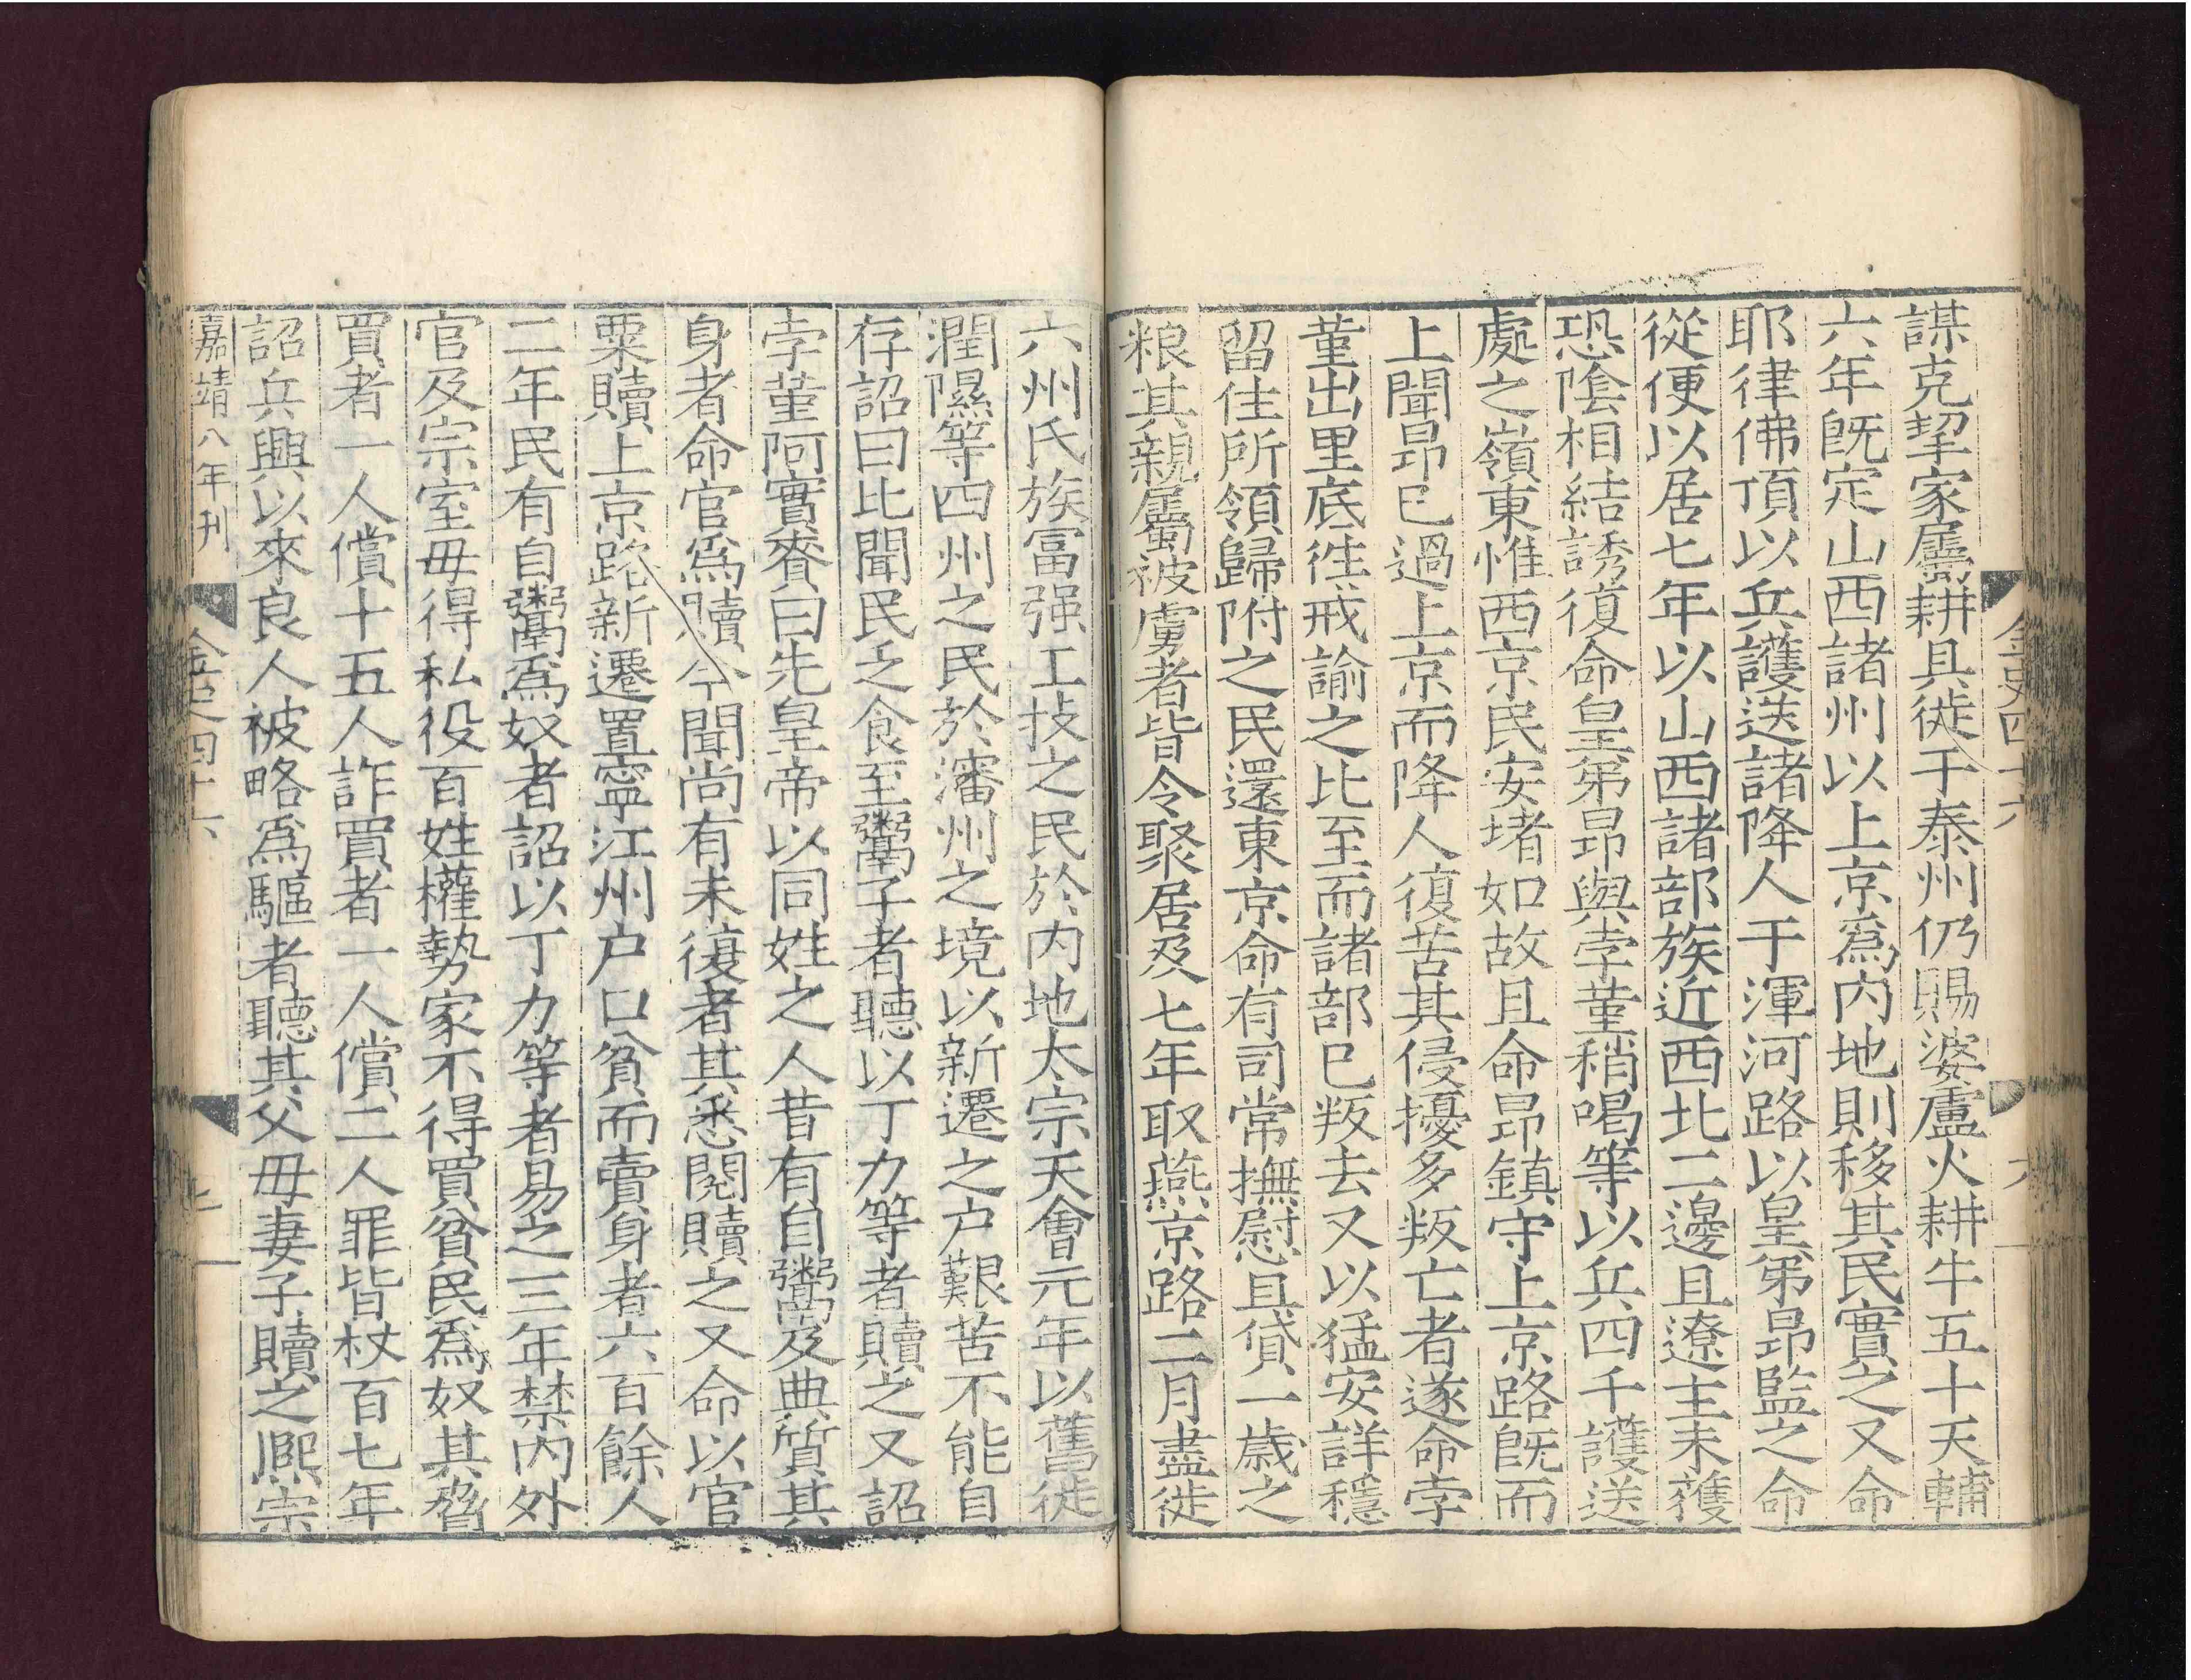 謀克挈家屬耕具徙于泰州仍賜婆盧火耕牛五十天輔
六年旣定山西諸州以上京爲內地則移其民實之又命
耶律佛頂以兵護送諸降人于渾河路以皇弟昂監之命
從便以居七年以山西諸部族近西北二邊且遼主未獲
恐陰相結誘復命皇弟昂與孛菫稍喝等以兵四千護送
處之嶺東惟西京民安堵如故且命昂鎮守上京路旣而
上聞昂已過上京而降人復苦其侵擾多叛亡者遂命孛
菫出里底徃戒諭之比至而諸部已叛去又以猛安詳穩
留住所領歸附之民還東京命有司常撫慰且貸一歲之
粮其親屬被虜者皆令聚居及七年取燕京路二月盡徙
六州氏族富强工技之民於內地太宗天會元年以舊徙
潤隰等四州之民於瀋州之境以新遷之户艱苦不能自
存詔曰比聞民乏食至鬻子者聽以丁力等者贖之又詔
孛菫阿實賚曰先皇帝以同姓之人昔有自鬻及典質其
身者命官爲贖今聞尚有未復者其悉閱贖之又命以官
粟贖上京路新遷置寧江州户口貧而賣身者六百餘人
二年民有自鬻爲奴者詔以丁力等者易之三年禁內外
官及宗室毋得私役百姓權勢家不得買貧民爲奴其脅
買者一人償十五人詐買者一人償二人罪皆杖百七年
詔兵興以來良人被略爲驅者聽其父母妻子贖之熈宗
嘉靖八年刊
金史四十六
七